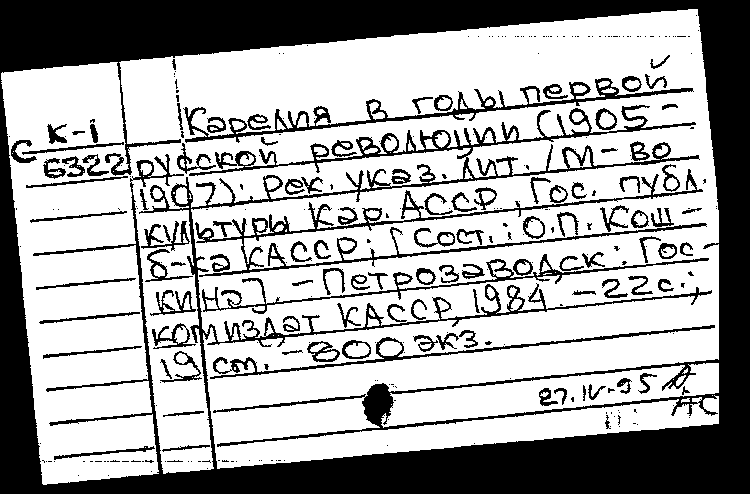 Карелия в годы первой
С К-1
6322 русской революции (1905-
1907): Рек. указ. лит. / М-во
культуры Кар. АССР, Гос. публ.
б-ка КАССР; [Сост.: О.П. Кош-
кина]. - Петрозаводск: Гос-
комиздат КАССР, 1984. - 22 с.;
19 см. - 800 экз.
27.IV-95
АС